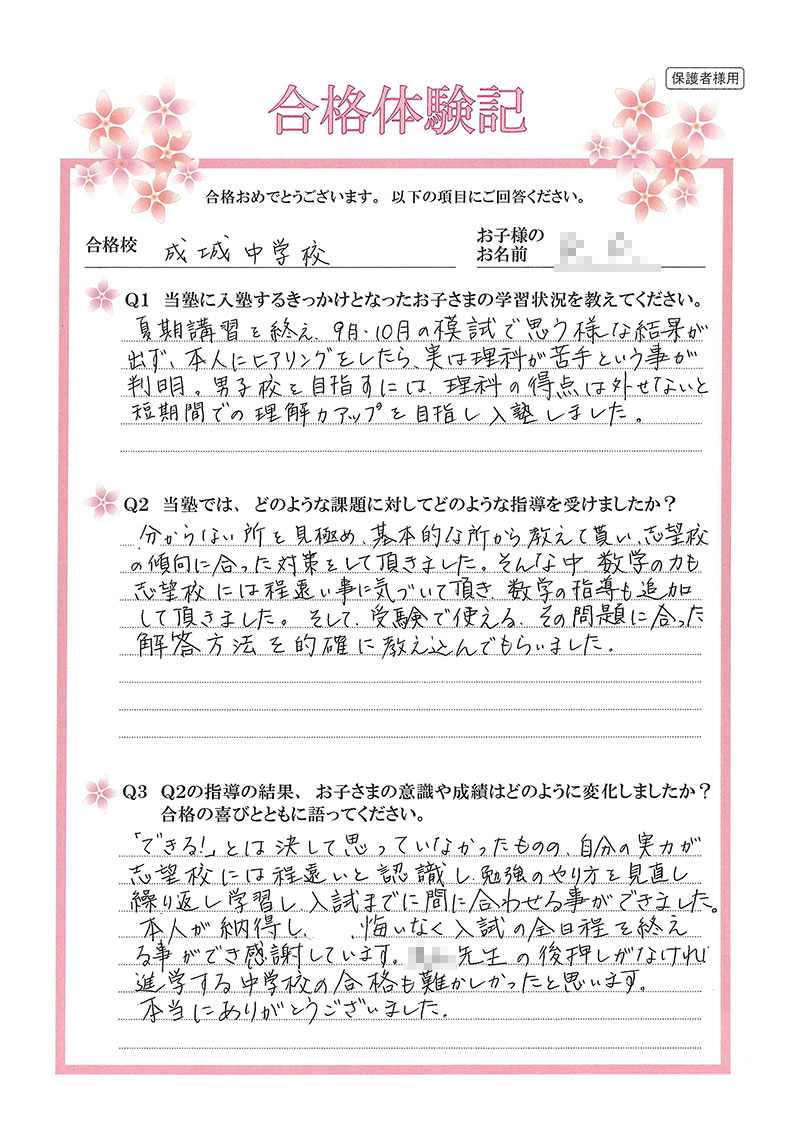 保護者様用
合格体験記
合格おめでとうございます。以下の項目にご回答ください。
合格校 成城中学校
お子様の
お名前
Q1 当塾に入塾するきっかけとなったお子さまの学習状況を教えてください。
夏期講習を終え、9月・10月の模試で思う様な結果が
出ず、本人にヒアリングをしたら、実は理科が苦手という事が
判明。男子校を目指すには、理科の得点は外せないと
短期間での理解力アップを目指し入塾しました。
Q2 当塾では、どのような課題に対してどのような指導を受けましたか？
分からない所を見極め、基本的な所から教えて貰い、志望校
の傾向に合った対策をして頂きました。そんな中 数学の力も
志望校には程遠い事に気づいて頂き、数学の指導も追加
して頂きました。そして、受験で使える、その問題に合った
解答方法を的確に教え込んでもらいました。
Q3 Q2の指導の結果、お子さまの意識や成績はどのように変化しましたか？
合格の喜びとともに語ってください。
「できる！」とは決して思っていなかったものの、自分の実力が
志望校には程遠いと認識し、勉強のやり方を見直し
繰り返し学習し、入試までに間に合わせる事ができました。
本人が納得し、 悔いなく入試の全日程を終え
る事ができ感謝しています。 先生の後押しがなければ
進学する中学校の合格も難かしかったと思います。
本当にありがとうございました。